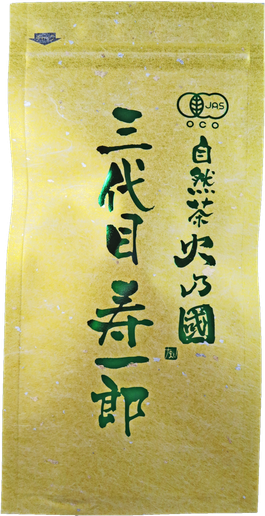 JAS
OCO
自然茶火乃國
三代目 寿一郎